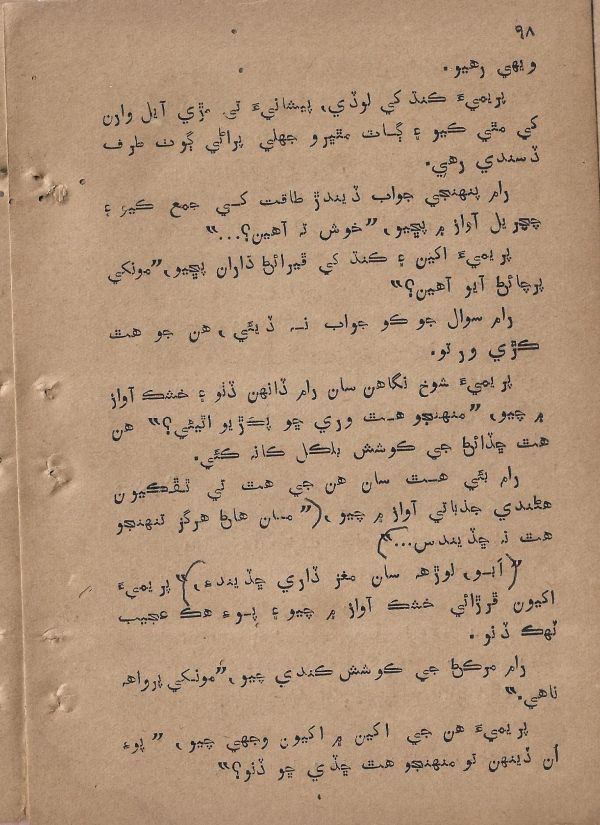 ۹۸
ويهي رهيو.
پريميءَ ڪنڌ کي لوڏي، پيشانيءَ تي مڙي آيل وارن
کي مٿي ڪيو ۽ ڳاٽ مٿيرو جهلي پراڻي ڳوٺ طرف
ڏسندي رهي.
رام پنهنجي جواب ڏيندڙ طاقت کي جمع ڪيو ۽
چچريل آواز ۾ پڇيو، ”خوش تہ آهين؟...“
پريميءَ اکين ۽ ڪنڌ کي ڦيرائڻ ڌاران پڇيو، ”مونکي
پرچائڻ آيو آهين؟“
رام سوال جو ڪو جواب نہ ڏيئي، هن جو هٿ
ڪڙي ورتو.
پريميءَ شوخ نگاهن سان رام ڏانهن ڏٺو ۽ خشڪ آواز
۾ چيو، ”منهنجو هٿ وري ڇو پڪڙيو اٿيئي؟“ هن
هٿ ڇڏائڻ جي ڪوشش بلڪل ڪانہ ڪئي.
رام ٻئي هٿ سان هن جي هٿ تي ٺڦڪيون
هڻندي جذباتي آواز ۾ چيو، (”مان هاڻ هرگز تنهنجو
هٿ نہ ڇڏيندس...“)
”(اَبو، لوڙهہ سان مغز ڏاري ڇڏيندءِ،)“ پريميءَ
اکيون ڦرڙائي خشڪ آواز ۾ چيو ۽ پوءِ هڪ عجيب
ٽهڪ ڏنو.
رام مرڪڻ جي ڪوشش ڪندي چيو، ”مونکي پرواهہ
ناهي.“
پريميءَ هن جي اکين ۾ اکيون وجهي چيو، ”پوءِ
اُن ڏينهن تو منهنجو هٿ ڇڏي ڇو ڏنو؟“